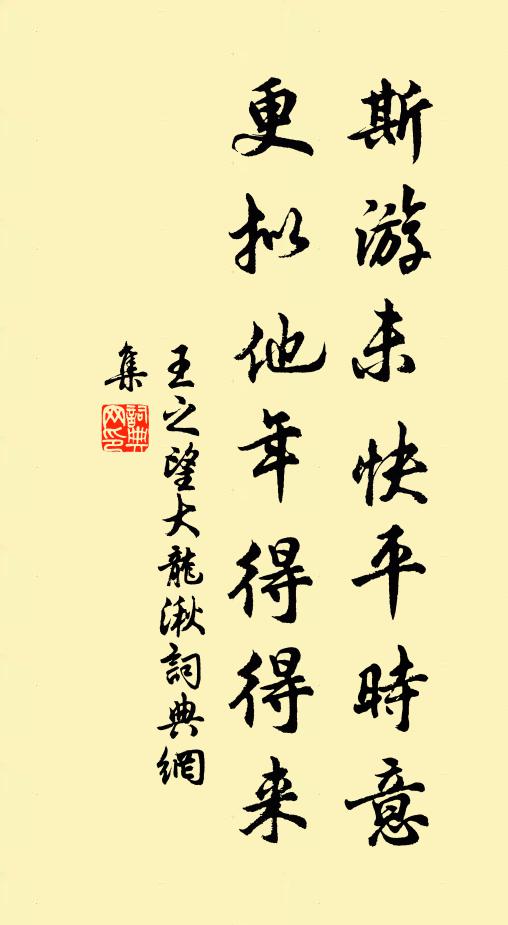 斯游未快平時意
更拟他年得得来
王之望大龍湫詞典網
集
詞典
网印